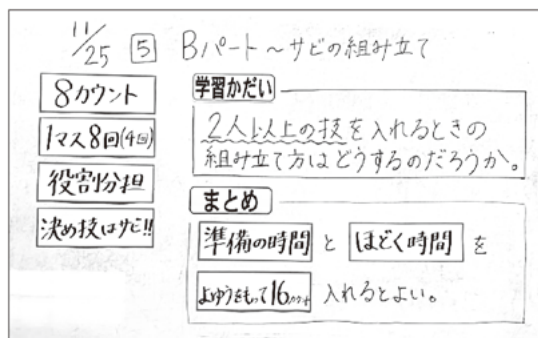 11/25 5 Bパート～サビの組み立て
8カウント
1マス8回(4回)
役割分担
決め技はサビ!!
学習かだい
2人以上の技を入れるときの
組み立て方はどうするのだろうか。
まとめ
準備の時間 と ほどく時間 を
よゆうをもって16カウント 入れるとよい。